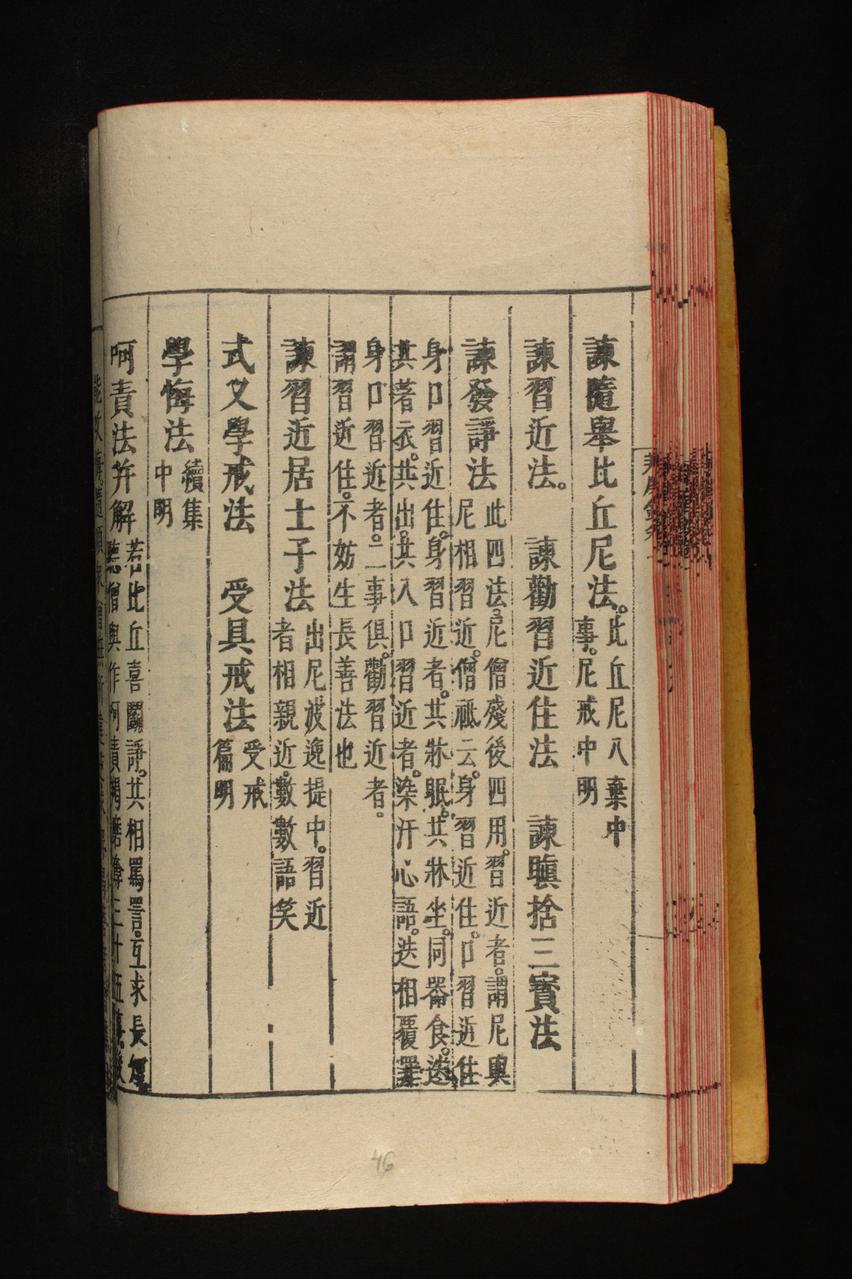 諫隨舉比丘尼法。此丘尼八棄中事。尼戒中明
諫習近法。　諫勸習近住法　諫瞋捨三寶法
諫發諍法此四法尼僧殘後四用。習近者。謂尼與尼相習近。僧祇云。身習近住。口習近住
身口習近住。身習近者。共牀眠。共牀坐。同器食。迭共著衣。共出。共入口習近者。染汙心語。迭相覆罪
身口習近者。二事俱。勸習近者。謂習近住。不妨生長善法也
諫習近居士子法出尼波逸提中。習近者相親近。數數語笑
式叉學戒法　受具戒法受戒篇明
學悔法續集中明
呵責法并解若比丘喜鬬諍。共相罵詈。互求長短聽僧與作呵責羯磨
46